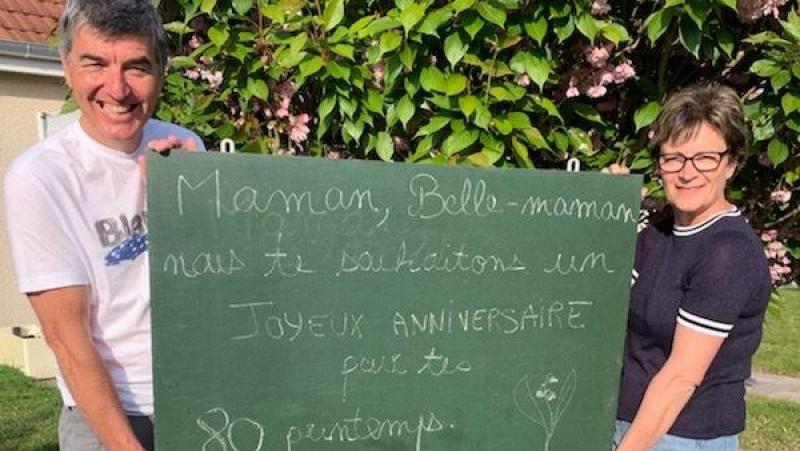 Maman, Belle-maman
nous te souhaitons un
JOYEUX ANNIVERSAIRE
pour tes
80 printemps.